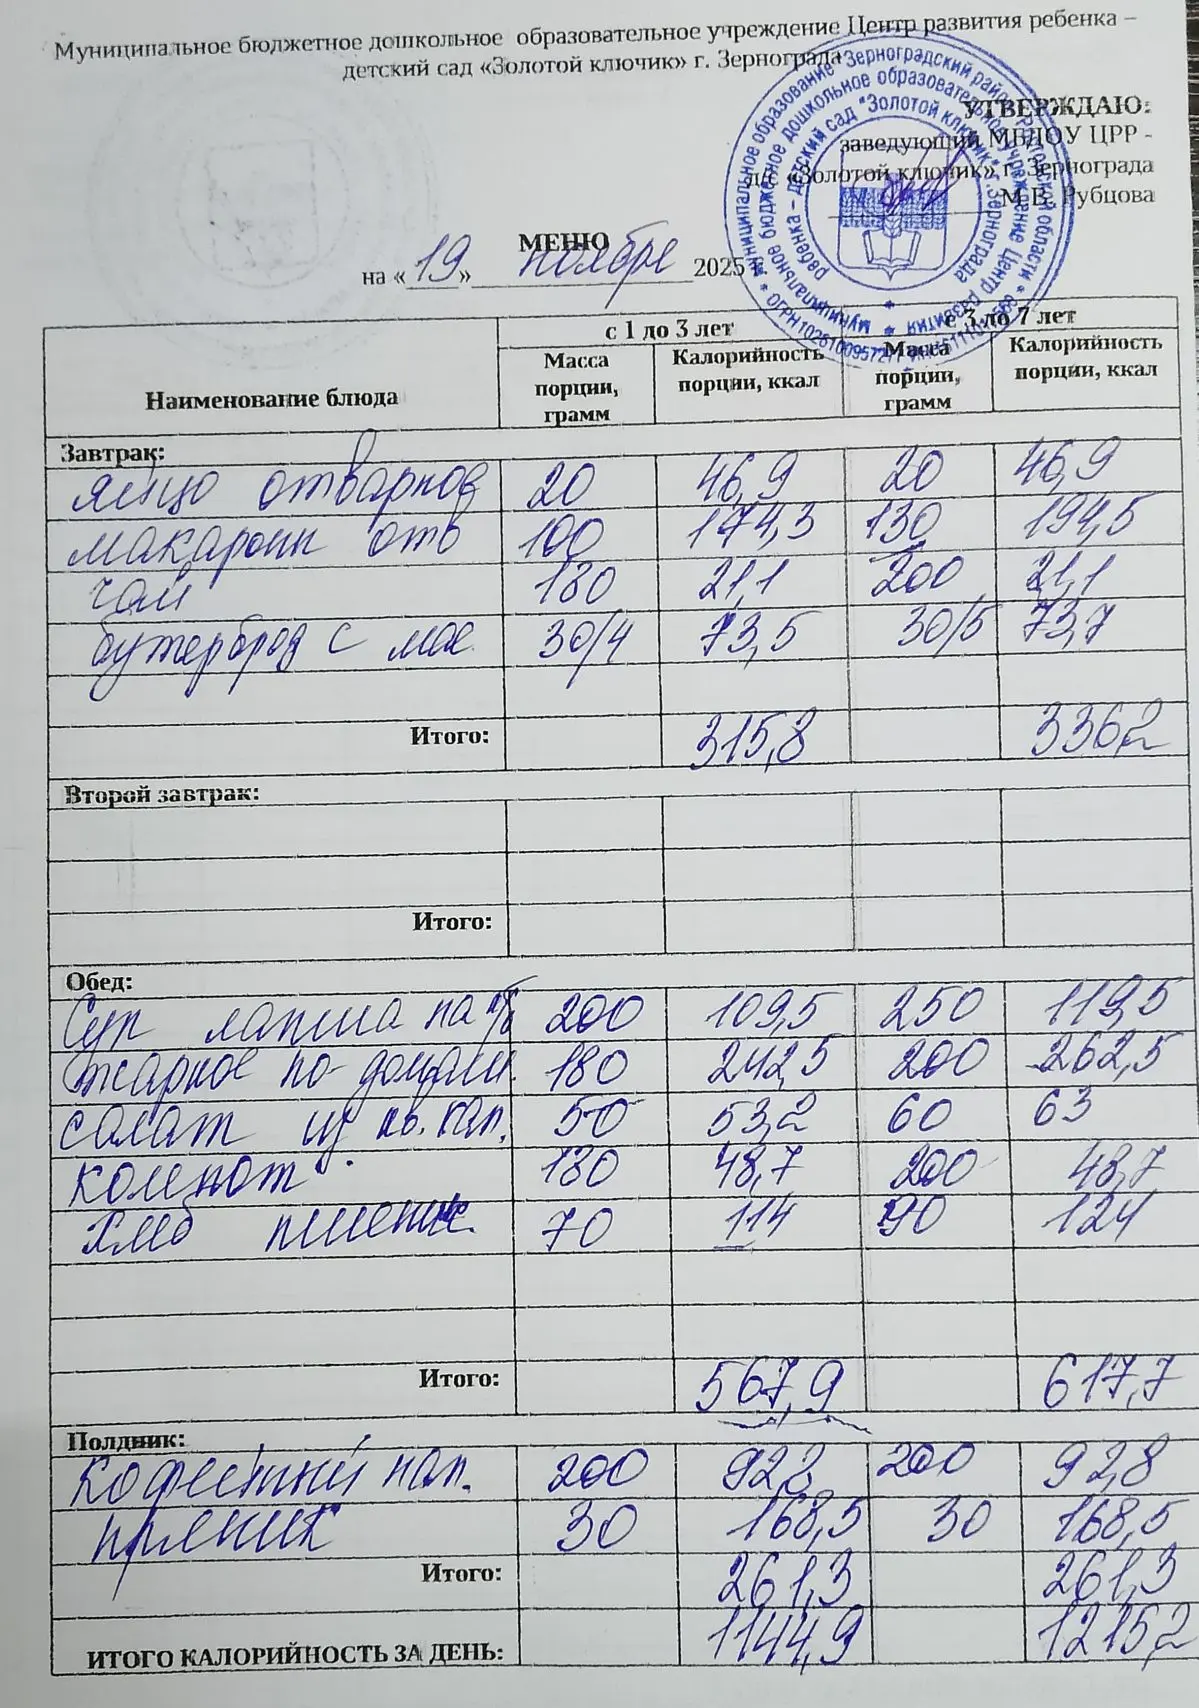 Муниципальное бюджетное дошкольное образовательное учреждение Центр развития ребенка –
детский сад «Золотой ключик» г. Зернограда
УТВЕРЖДАЮ:
заведующий МБДОУ ЦРР -
д/с «Золотой ключик» г. Зернограда
М.В. Рубцова
МЕНЮ
на «19» ноября 2025 г
Наименование блюда с 1 до 3 лет с 3 до 7 лет
Масса порции, грамм Калорийность порции, ккал Масса порции, грамм Калорийность порции, ккал
Завтрак:
яйцо отварное 20 46,9 20 46,9
макароны отв 100 174,3 130 194,5
чай 180 21,1 200 21,1
бутерброд с мас. 30/4 73,5 30/5 73,7
Итого: 315,8 336,2
Второй завтрак:
Итого:
Обед:
Суп лапша на к/б 200 109,5 250 119,5
жаркое по-домашн. 180 242,5 200 262,5
салат из кв. кап. 50 53,2 60 63
компот 180 48,7 200 48,7
хлеб пшенич. 70 114 90 124
Итого: 567,9 617,7
Полдник:
кофейный нап. 200 92,8 200 92,8
пряник 30 168,5 30 168,5
Итого: 261,3 261,3
ИТОГО КАЛОРИЙНОСТЬ ЗА ДЕНЬ: 1144,9 1215,2